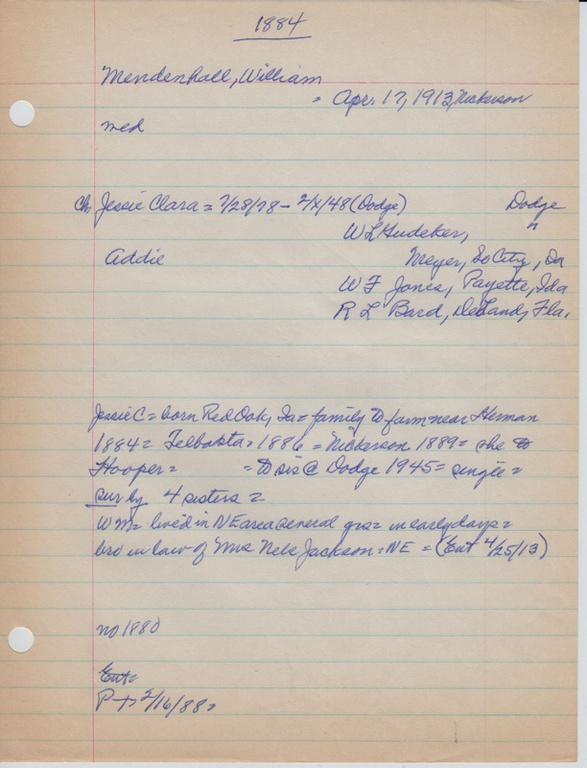 1884
Mendenhall, William
= Apr. 17, 1913, Nickerson
med
Ch Jessie Clara = 7/28/78 - 2/X/48 (Dodge) Dodge
W L Gudeker, "
Addie Meyer, So City, Ia
W F Jones, Payette, Ida
R L Bard, DeLand, Fla.
Jessie C = born Red Oak, Ia = family to farm near Herman
1884 = Telbasta = 1886 = Nickerson 1889 = she to
Hooper = = to sis @ Dodge 1945 = single =
sur by 4 sisters =
Wm = lived in NE area several yrs = in early days =
bro in law of Mrs Nels Jackson = NE = (Ent 4/25/13)
no 1880
Ent =
P + 2/16/88 =